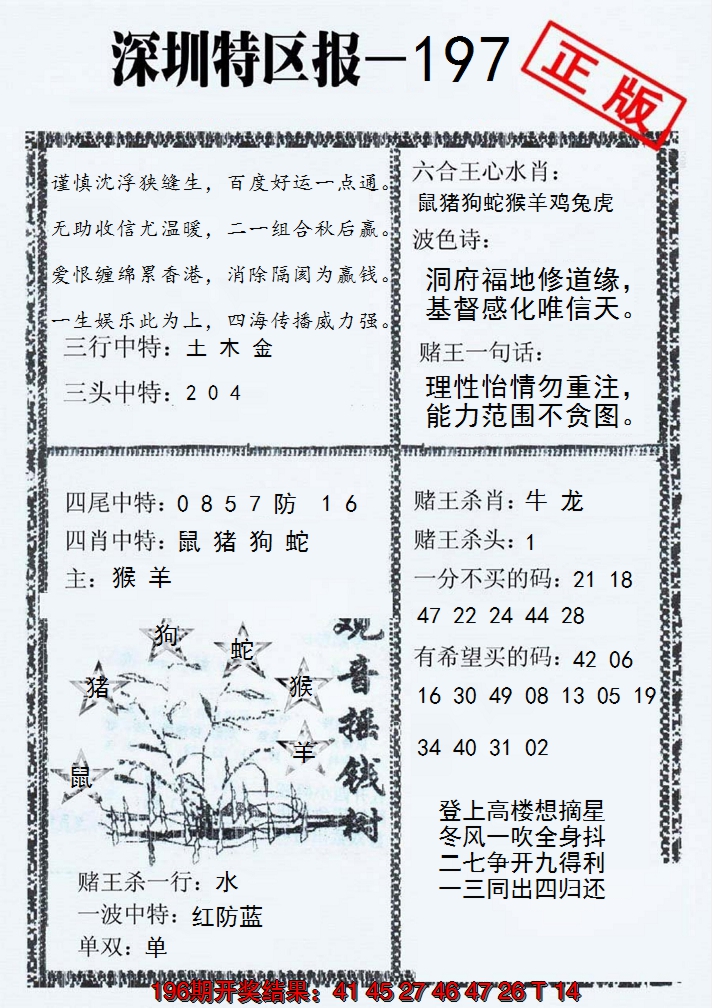 深圳特区报—197
正版
谨慎沈浮狭缝生，百度好运一点通。
无助收信尤温暖，二一组合秋后赢。
爱恨缠绵累香港，消除隔阂为赢钱。
一生娱乐此为上，四海传播威力强。
三行中特：土 木 金
三头中特：2 0 4
六合王心水肖：
鼠猪狗蛇猴羊鸡兔虎
波色诗：
洞府福地修道缘，
基督感化唯信天。
赌王一句话：
理性怡情勿重注，
能力范围不贪图。
四尾中特：0 8 5 7 防 1 6
四肖中特：鼠 猪 狗 蛇
主：猴 羊
狗
蛇
猪
猴
羊
鼠
观音摇钱树
赌王杀一行：水
一波中特：红防蓝
单双：单
赌王杀肖：牛 龙
赌王杀头：1
一分不买的码：21 18
47 22 24 44 28
有希望买的码：42 06
16 30 49 08 13 05 19
34 40 31 02
登上高楼想摘星
冬风一吹全身抖
二七争开九得利
一三同出四归还
196期开奖结果：41 45 27 46 47 26 T 14